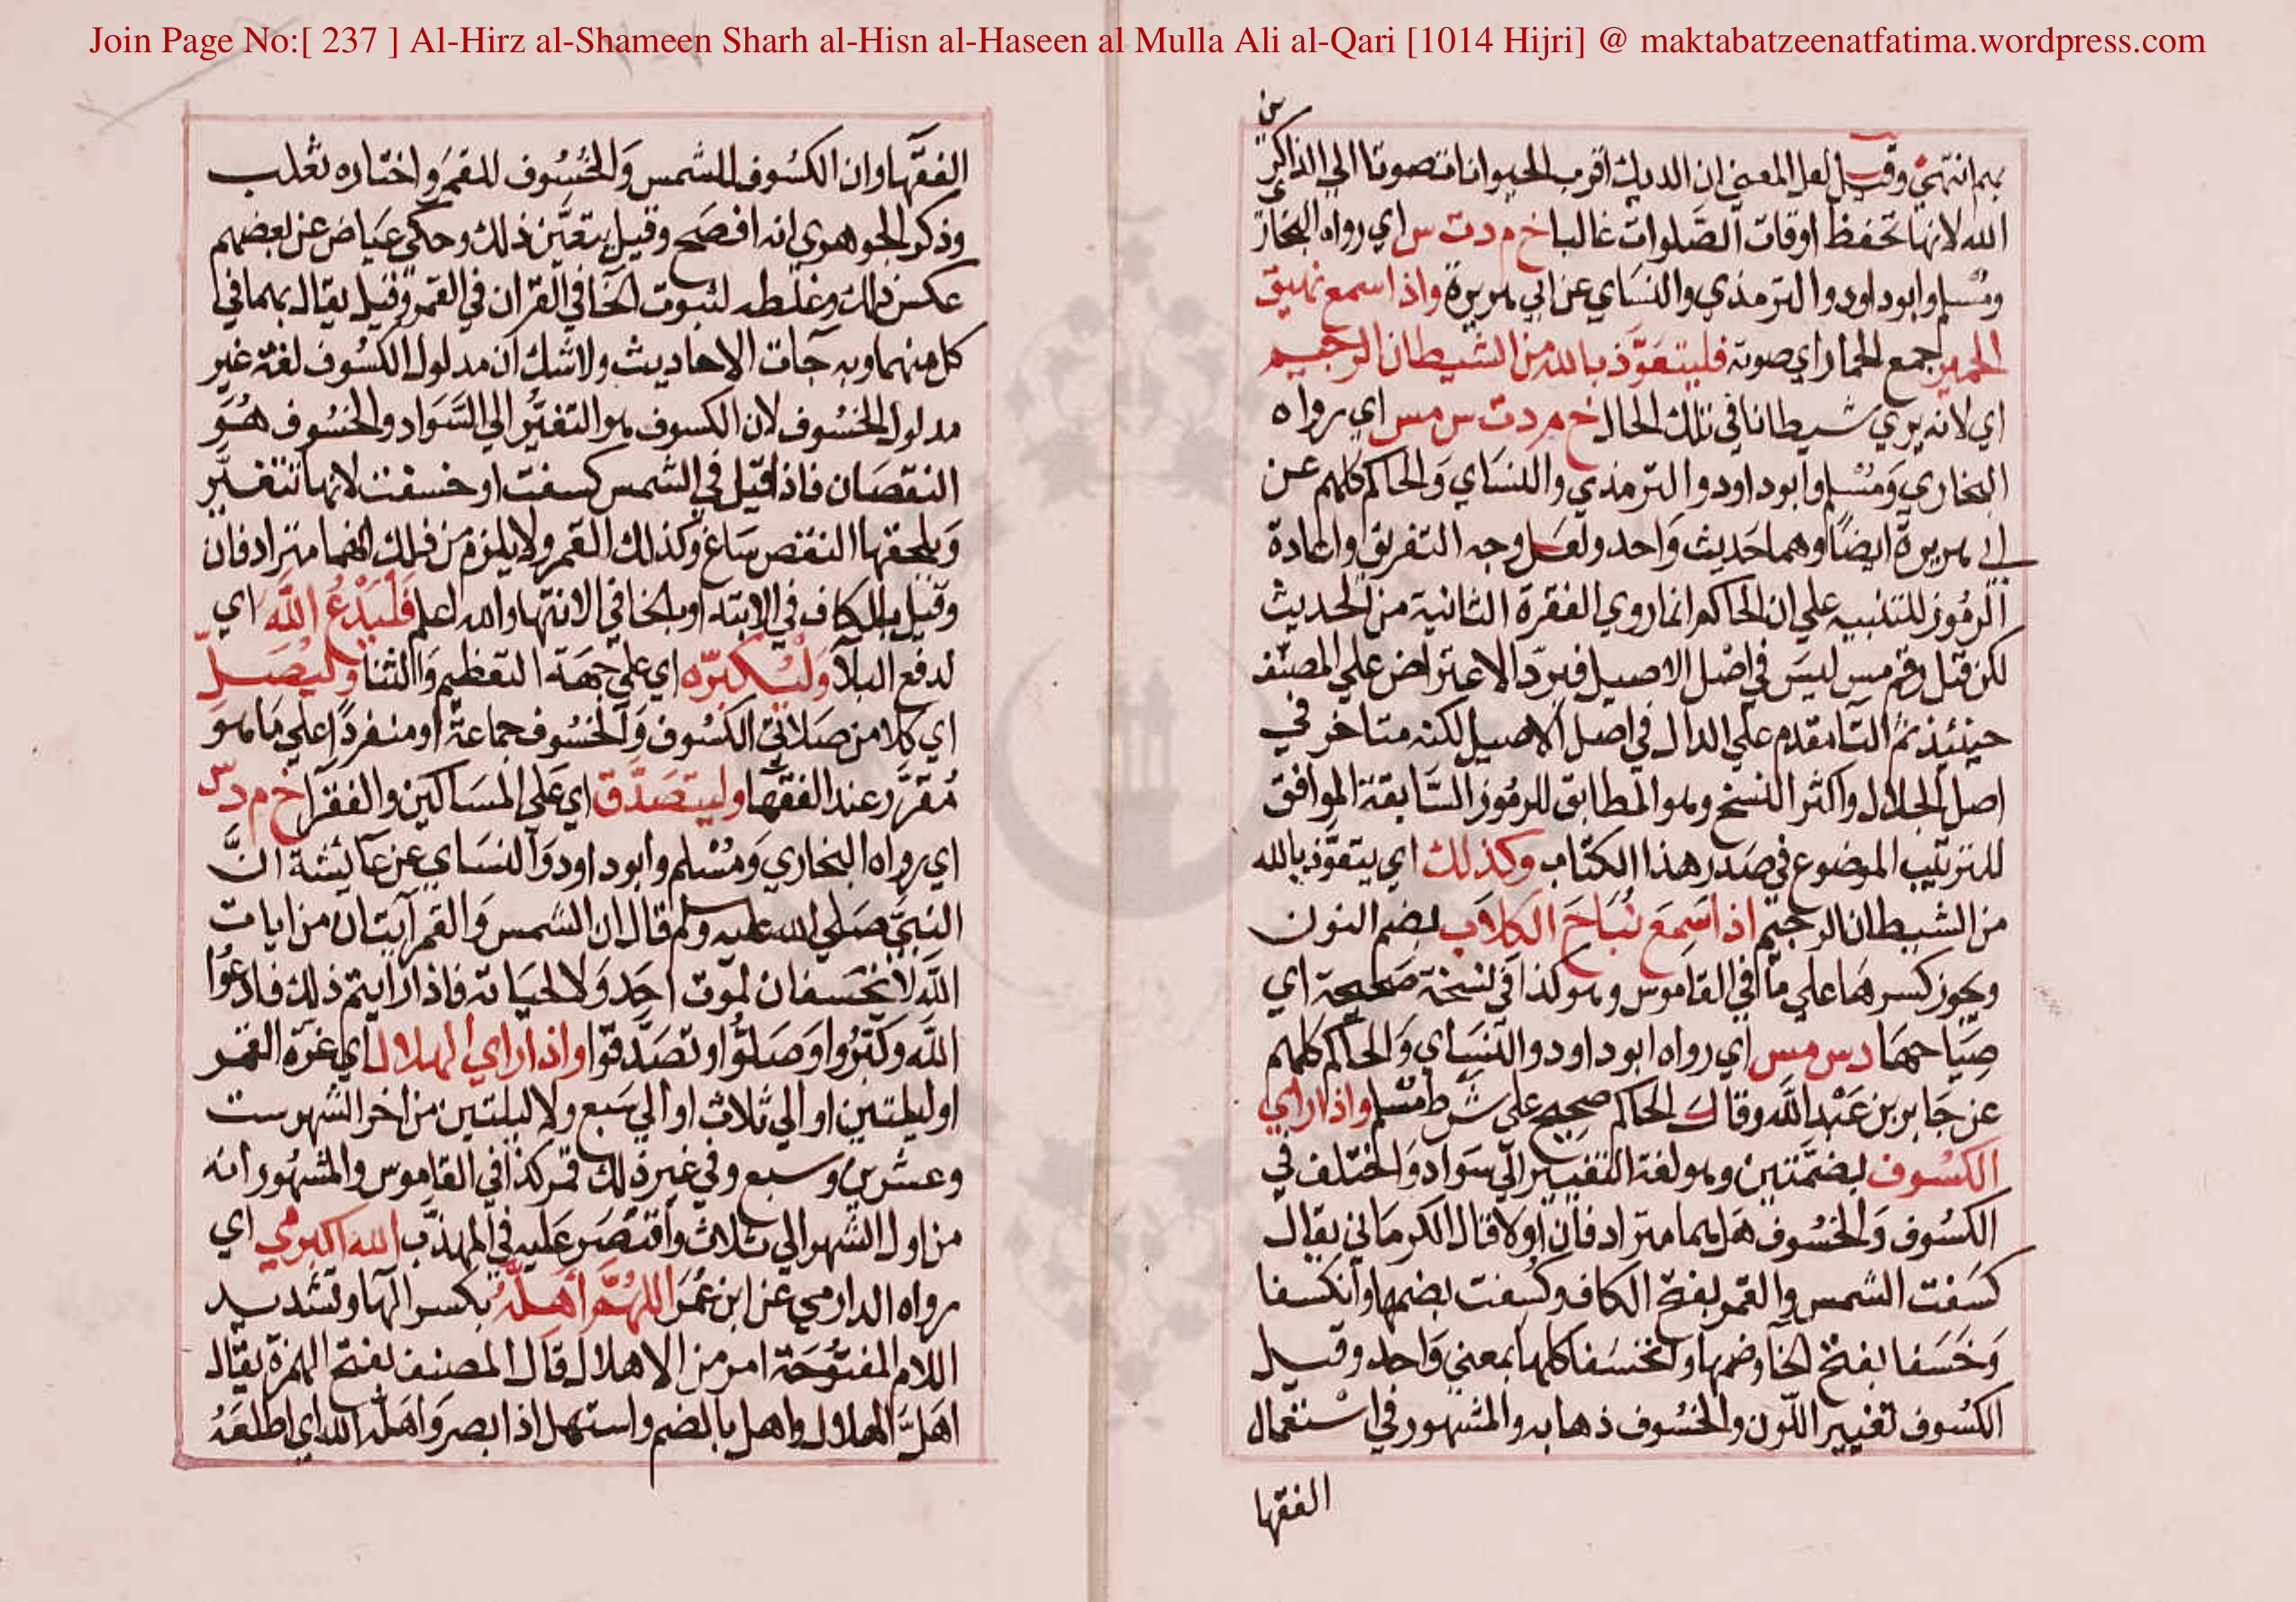 Join Page No:[ 237 ] Al-Hirz al-Shameen Sharh al-Hisn al-Haseen al Mulla Ali al-Qari [1014 Hijri] @ maktabatzeenatfatima.wordpress.com
بهم انتهى وقيل لعل المعنى ان الديك اقرب الحيوانات صوتا الي الذاكرين
الله لانها تحفظ اوقات الصلوات غالبا خ م د ت س اي رواه البخاري
ومسلم وابو داود والترمذي والنساي عن ابي هريرة واذا سمع نهيق
الحمير جمع الحمار اي صوته فليتعوذ بالله من الشيطان الرجيم
اي لانه يري شيطانا في تلك الحال خ م د ت س مس اي رواه
البخاري ومسلم وابو داود والترمذي والنساي والحاكم كلهم عن
ابي هريرة ايضا وهما حديث واحد ولعل وجه التفريق واعادة
الرموز للتنبيه علي ان الحاكم انما روي الفقرة الثانية من الحديث
لكن قيل رقم مس ليس في اصل الاصيل فيرد الاعتراض علي المصنف
حينئذ ثم التا مقدم علي الدال في اصل الاصيل لكنه متاخر في
اصل الجلال واكثر النسخ وهو المطابق للرموز السابقة الموافق
للترتيب الموضوع في صدر هذا الكتاب وكذلك اي يتعوذ بالله
من الشيطان الرجيم اذا سمع نباح الكلاب بضم النون
ويجوز كسرها علي ما في القاموس وهو كذا في نسخة صحيحة اي
صياحها د س مس اي رواه ابو داود والنساي والحاكم كلهم
عن جابر بن عبد الله وقال الحاكم صحيح علي شرط مسلم واذا راي
الكسوف بضمتين وهو لغة التغيير الي سواد واختلف في
الكسوف والخسوف هل هما مترادفان اولا قال الكرماني يقال
كسفت الشمس والقمر بفتح الكاف وكسفت بضمها وانكسفا
وخسفا بفتح الخا وضمها وانخسفا كلها بمعني واحد وقيل
الكسوف تغيير اللون والخسوف ذهابه والمشهور في استعمال
الفقها
الفقها وان الكسوف للشمس والخسوف للقمر واختاره ثعلب
وذكر الجوهري انه افصح وقيل يتعين ذلك وحكي عياض عن بعضهم
عكس ذلك وغلطه لثبوت الخا في القران في القمر وقيل يقال بهما في
كل منهما وبه جات الاحاديث ولا شك ان مدلول الكسوف لغة غير
مدلول الخسوف لان الكسوف هو التغير الي السواد والخسوف هو
النقصان فاذا قيل في الشمس كسفت او خسفت لانها تتغير
ويلحقها النقص ساغ وكذلك القمر ولا يلزم من ذلك انهما مترادفان
وقيل بالكاف في الابتدا وبالخا في الانتها والله اعلم فليدع الله اي
لدفع البلا وليكبره اي علي جهة التعظيم والثنا وليصل
اي كلا من صلاتي الكسوف والخسوف جماعة او منفردا علي ما هو
مقرر عند الفقها وليتصدق اي علي المساكين والفقرا خ م د س
اي رواه البخاري ومسلم وابو داود والنساي عن عائشة ان
النبي صلي الله عليه وسلم قال ان الشمس والقمر آيتان من ايات
الله لا يخسفان لموت احد ولا لحياته فاذا رايتم ذلك فادعوا
الله وكبروا وصلوا وتصدقوا واذا راي الهلال اي غرة القمر
او ليلتين او الي ثلاث او الي سبع ولليلتين من اخر الشهر ست
وعشرين وسبع وفي غير ذلك قمر كذا في القاموس والمشهور انه
من اول الشهر الي ثلاث واقتصر عليه في المهذب الله اكبر مي اي
رواه الدارمي عن ابن عمر اللهم اهله بكسر الها وتشديد
اللام المفتوحة امر من الاهلال قال المصنف بفتح الهمزة يقال
اهل الهلال واهل بالضم واستهل اذا ابصر واهله الله اي اطلعه